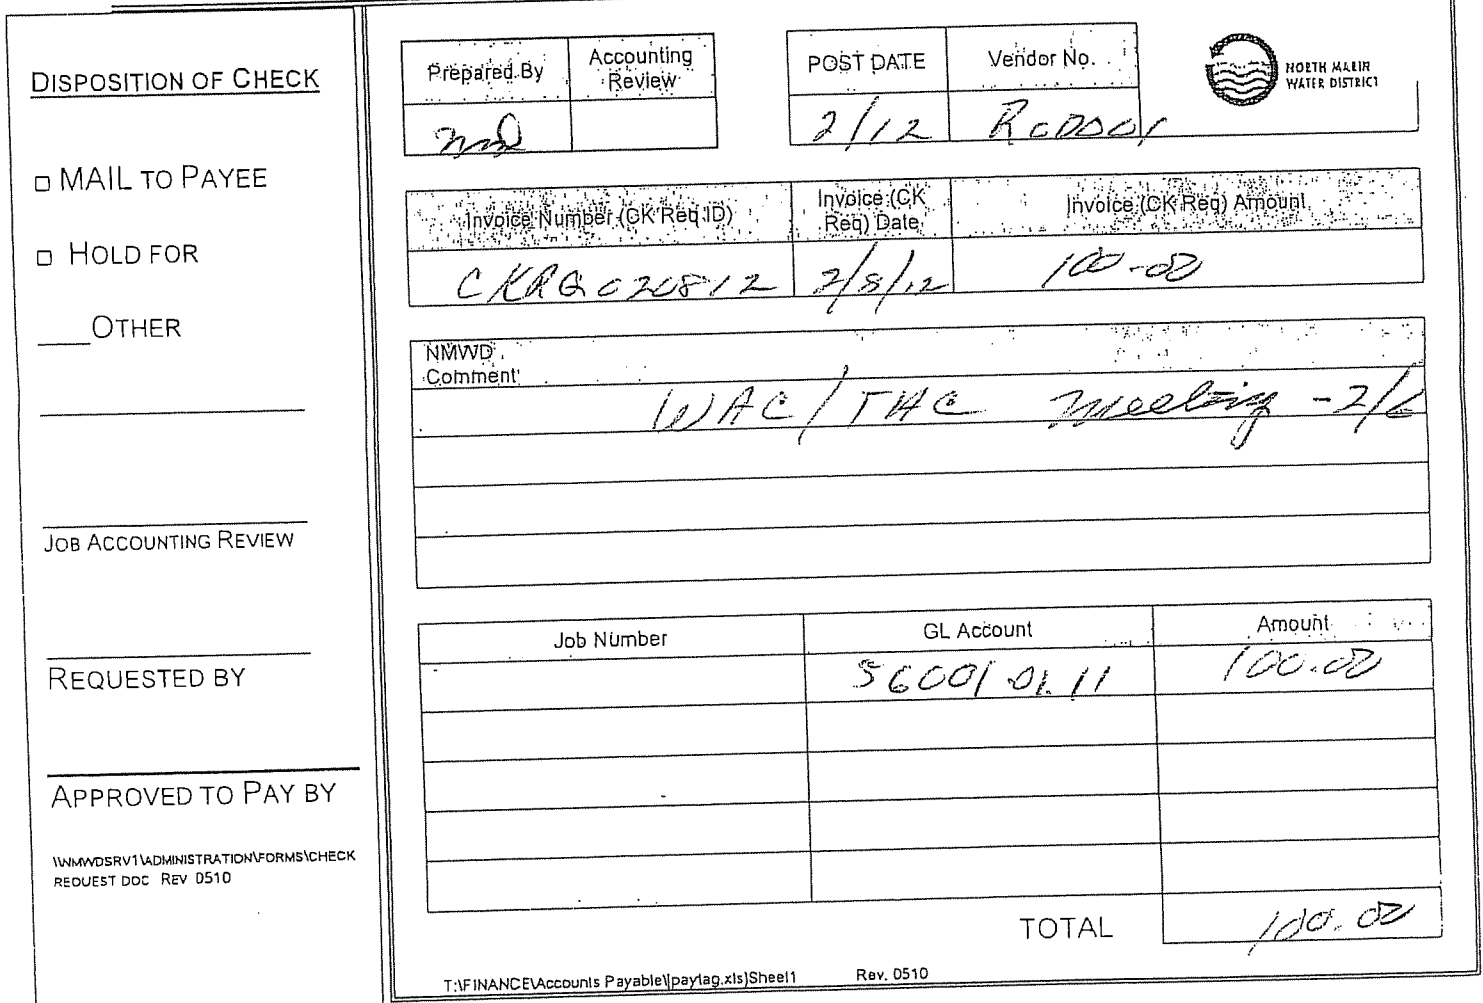 DISPOSITION OF CHECK
□ MAIL TO PAYEE
□ HOLD FOR
____OTHER
JOB ACCOUNTING REVIEW
REQUESTED BY
APPROVED TO PAY BY
\\NMWDSRV1\ADMINISTRATION\FORMS\CHECK
REQUEST DOC REV 0510
Prepared By
Accounting
Review
POST DATE
Vendor No.
2/12
NORTH MARIN
WATER DISTRICT
Invoice Number (CK Req ID)
Invoice (CK
Req) Date
Invoice (CK Req) Amount
CKRQ020812
2/8/12
100-00
NMWD
Comment
WAC/TAC Meeting - 2/6
Job Number
GL Account
Amount
56001.01.11
100.00
TOTAL
100.00
T:\FINANCE\Accounts Payable\[paytag.xls]Sheet1
Rev. 0510